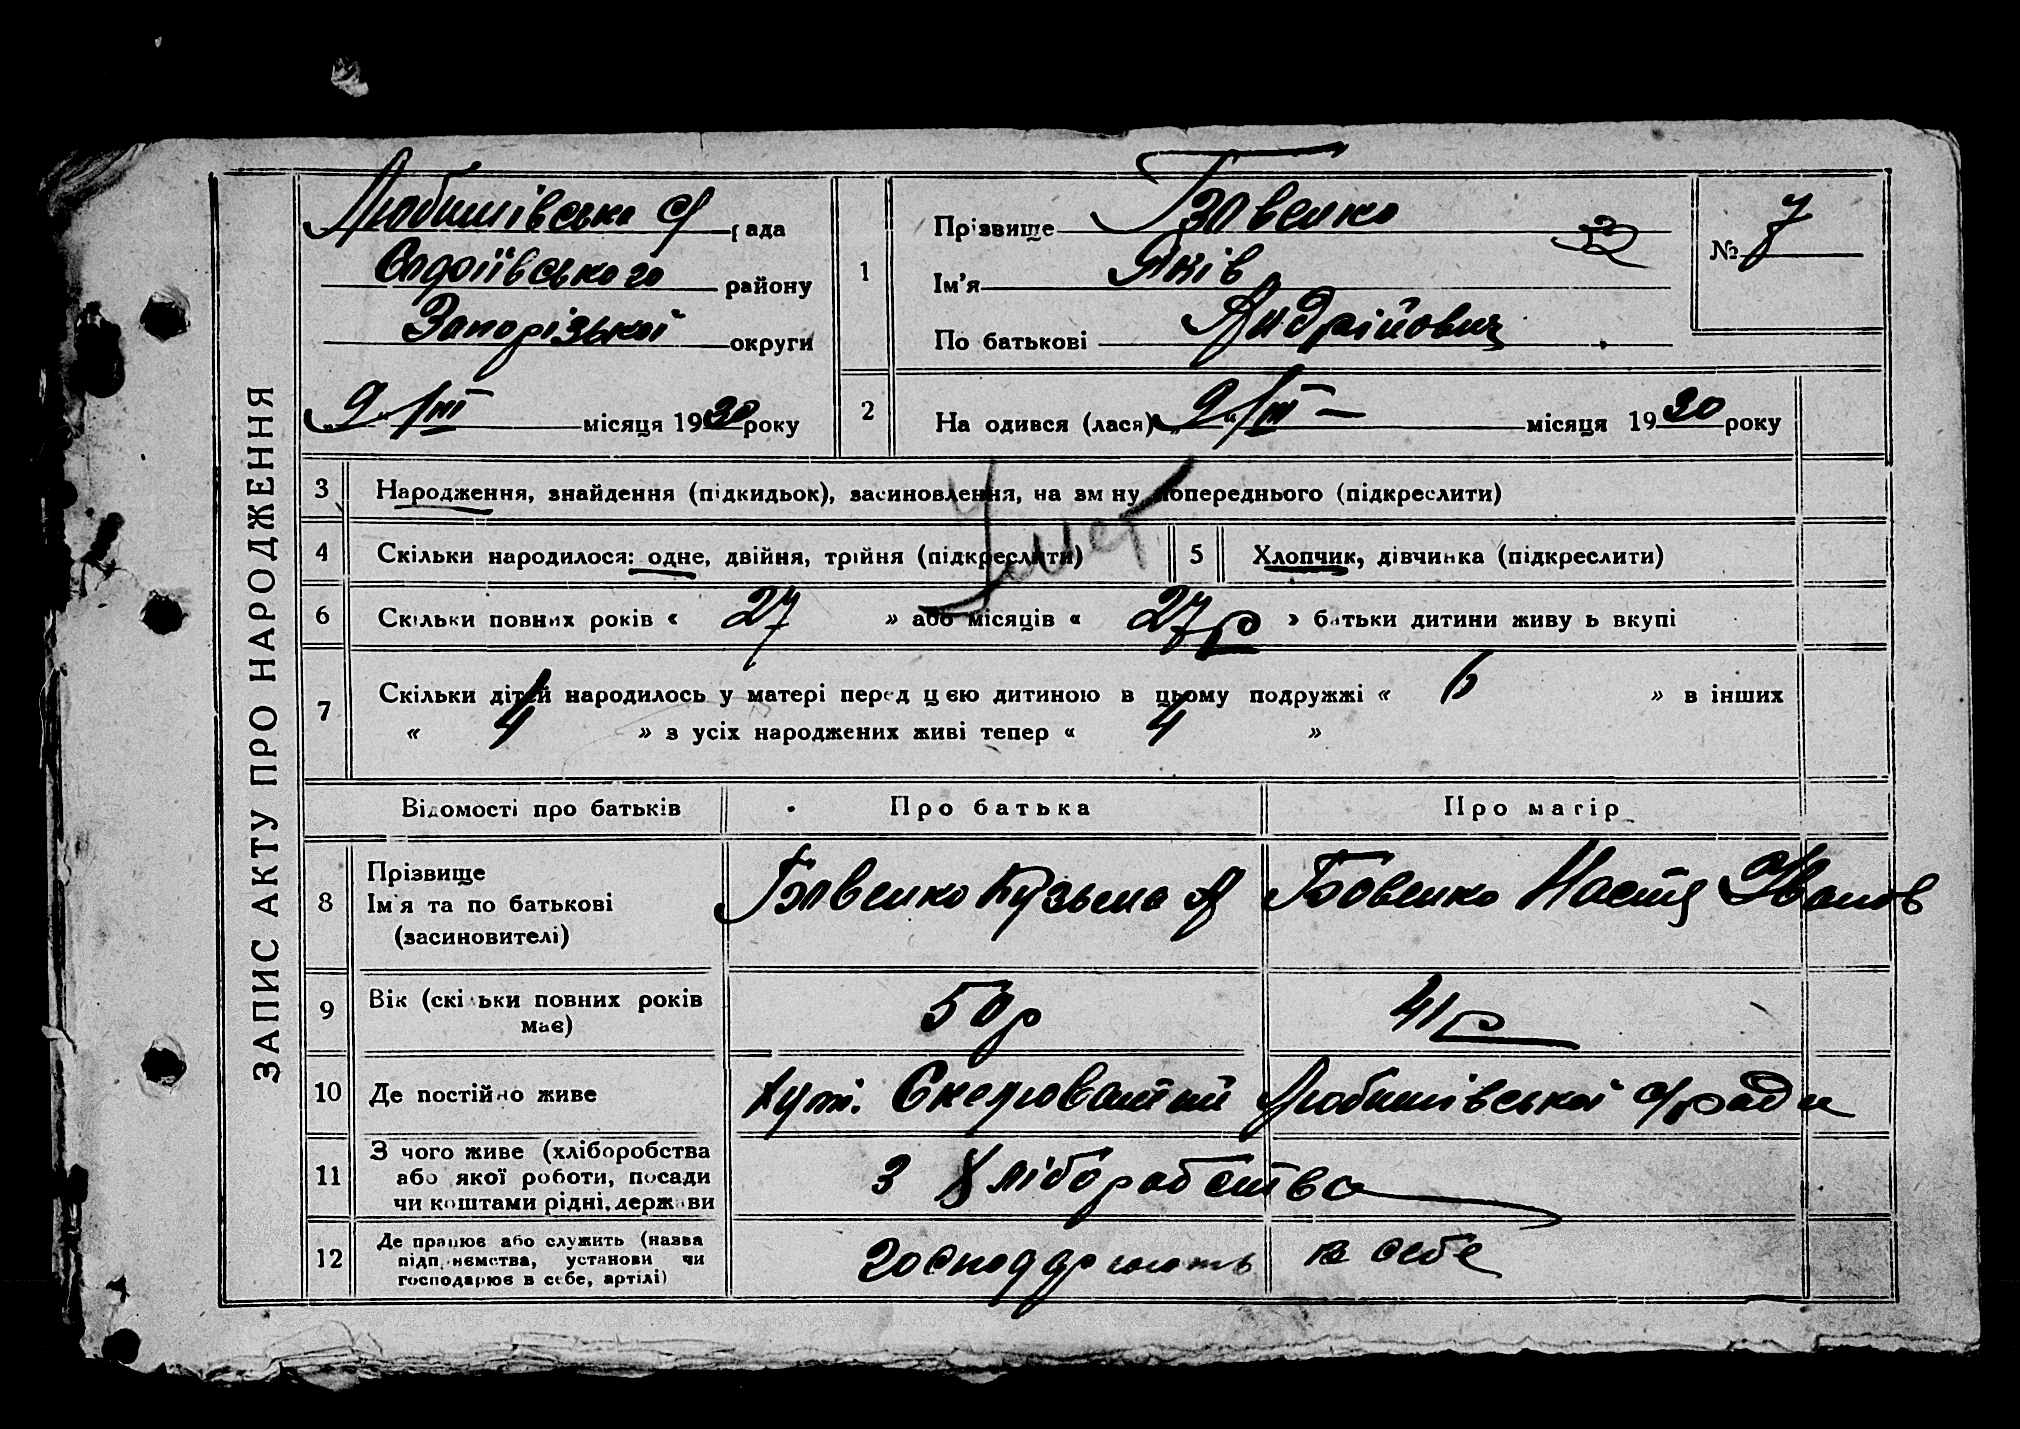 ЗАПИС АКТУ ПРО НАРОДЖЕННЯ
Любимівська с/ рада
району
Запорізької округи
9/III місяця 1930 року
1
Прізвище
Ім'я Яків
По батькові Андрійович
№ 7
2 На одився (лася) 9/III — місяця 1930 року
3 Народження, знайдення (підкидьок), засиновлення, на зм ну попереднього (підкреслити)
4 Скільки народилося: одне, двійня, трійня (підкреслити) 5 Хлопчик, дівчинка (підкреслити)
6 Скільки повних років « 27 » або місяців « 27 р » батьки дитини живу ь вкупі
7 Скільки дітей народилось у матері перед цією дитиною в цьому подружжі « 6 » в інших
« 4 » з усіх народжених живі тепер « 4 »
Відомості про батьків Про батька Про матір
8 Прізвище
Ім'я та по батькові
(засиновителі)
Кузьма А Настя Іванов
9 Вік (скільки повних років має) 50 р 41 р
10 Де постійно живе хут. Любимівської с/ради
11 З чого живе (хліборобства або якої роботи, посади чи коштами рідні, держави з хліборобства
12 Де працює або служить (назва підприємства, установи чи господарює в себе, артілі) господарюють в себе